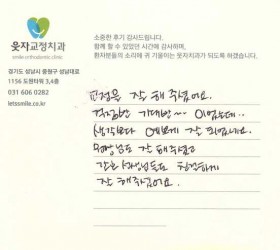 웃자교정치과
smile orthodontic clinic
경기도 성남시 중원구 성남대로
1156 도원타워 3,4층
031 606 0282
letssmile.co.kr
소중한 후기 감사드립니다.
함께 할 수 있었던 시간에 감사하며,
환자분들의 소리에 귀 기울이는 웃자치과가 되도록 하겠습니다.
교정을 잘 해 주셨어요.
걱정반 기대반~ 이었는데..
생각보다 예쁘게 잘 되었네요.
원장님도 잘 해주셨고
간호 선생님들도 친절하게
잘 해주셨어요.